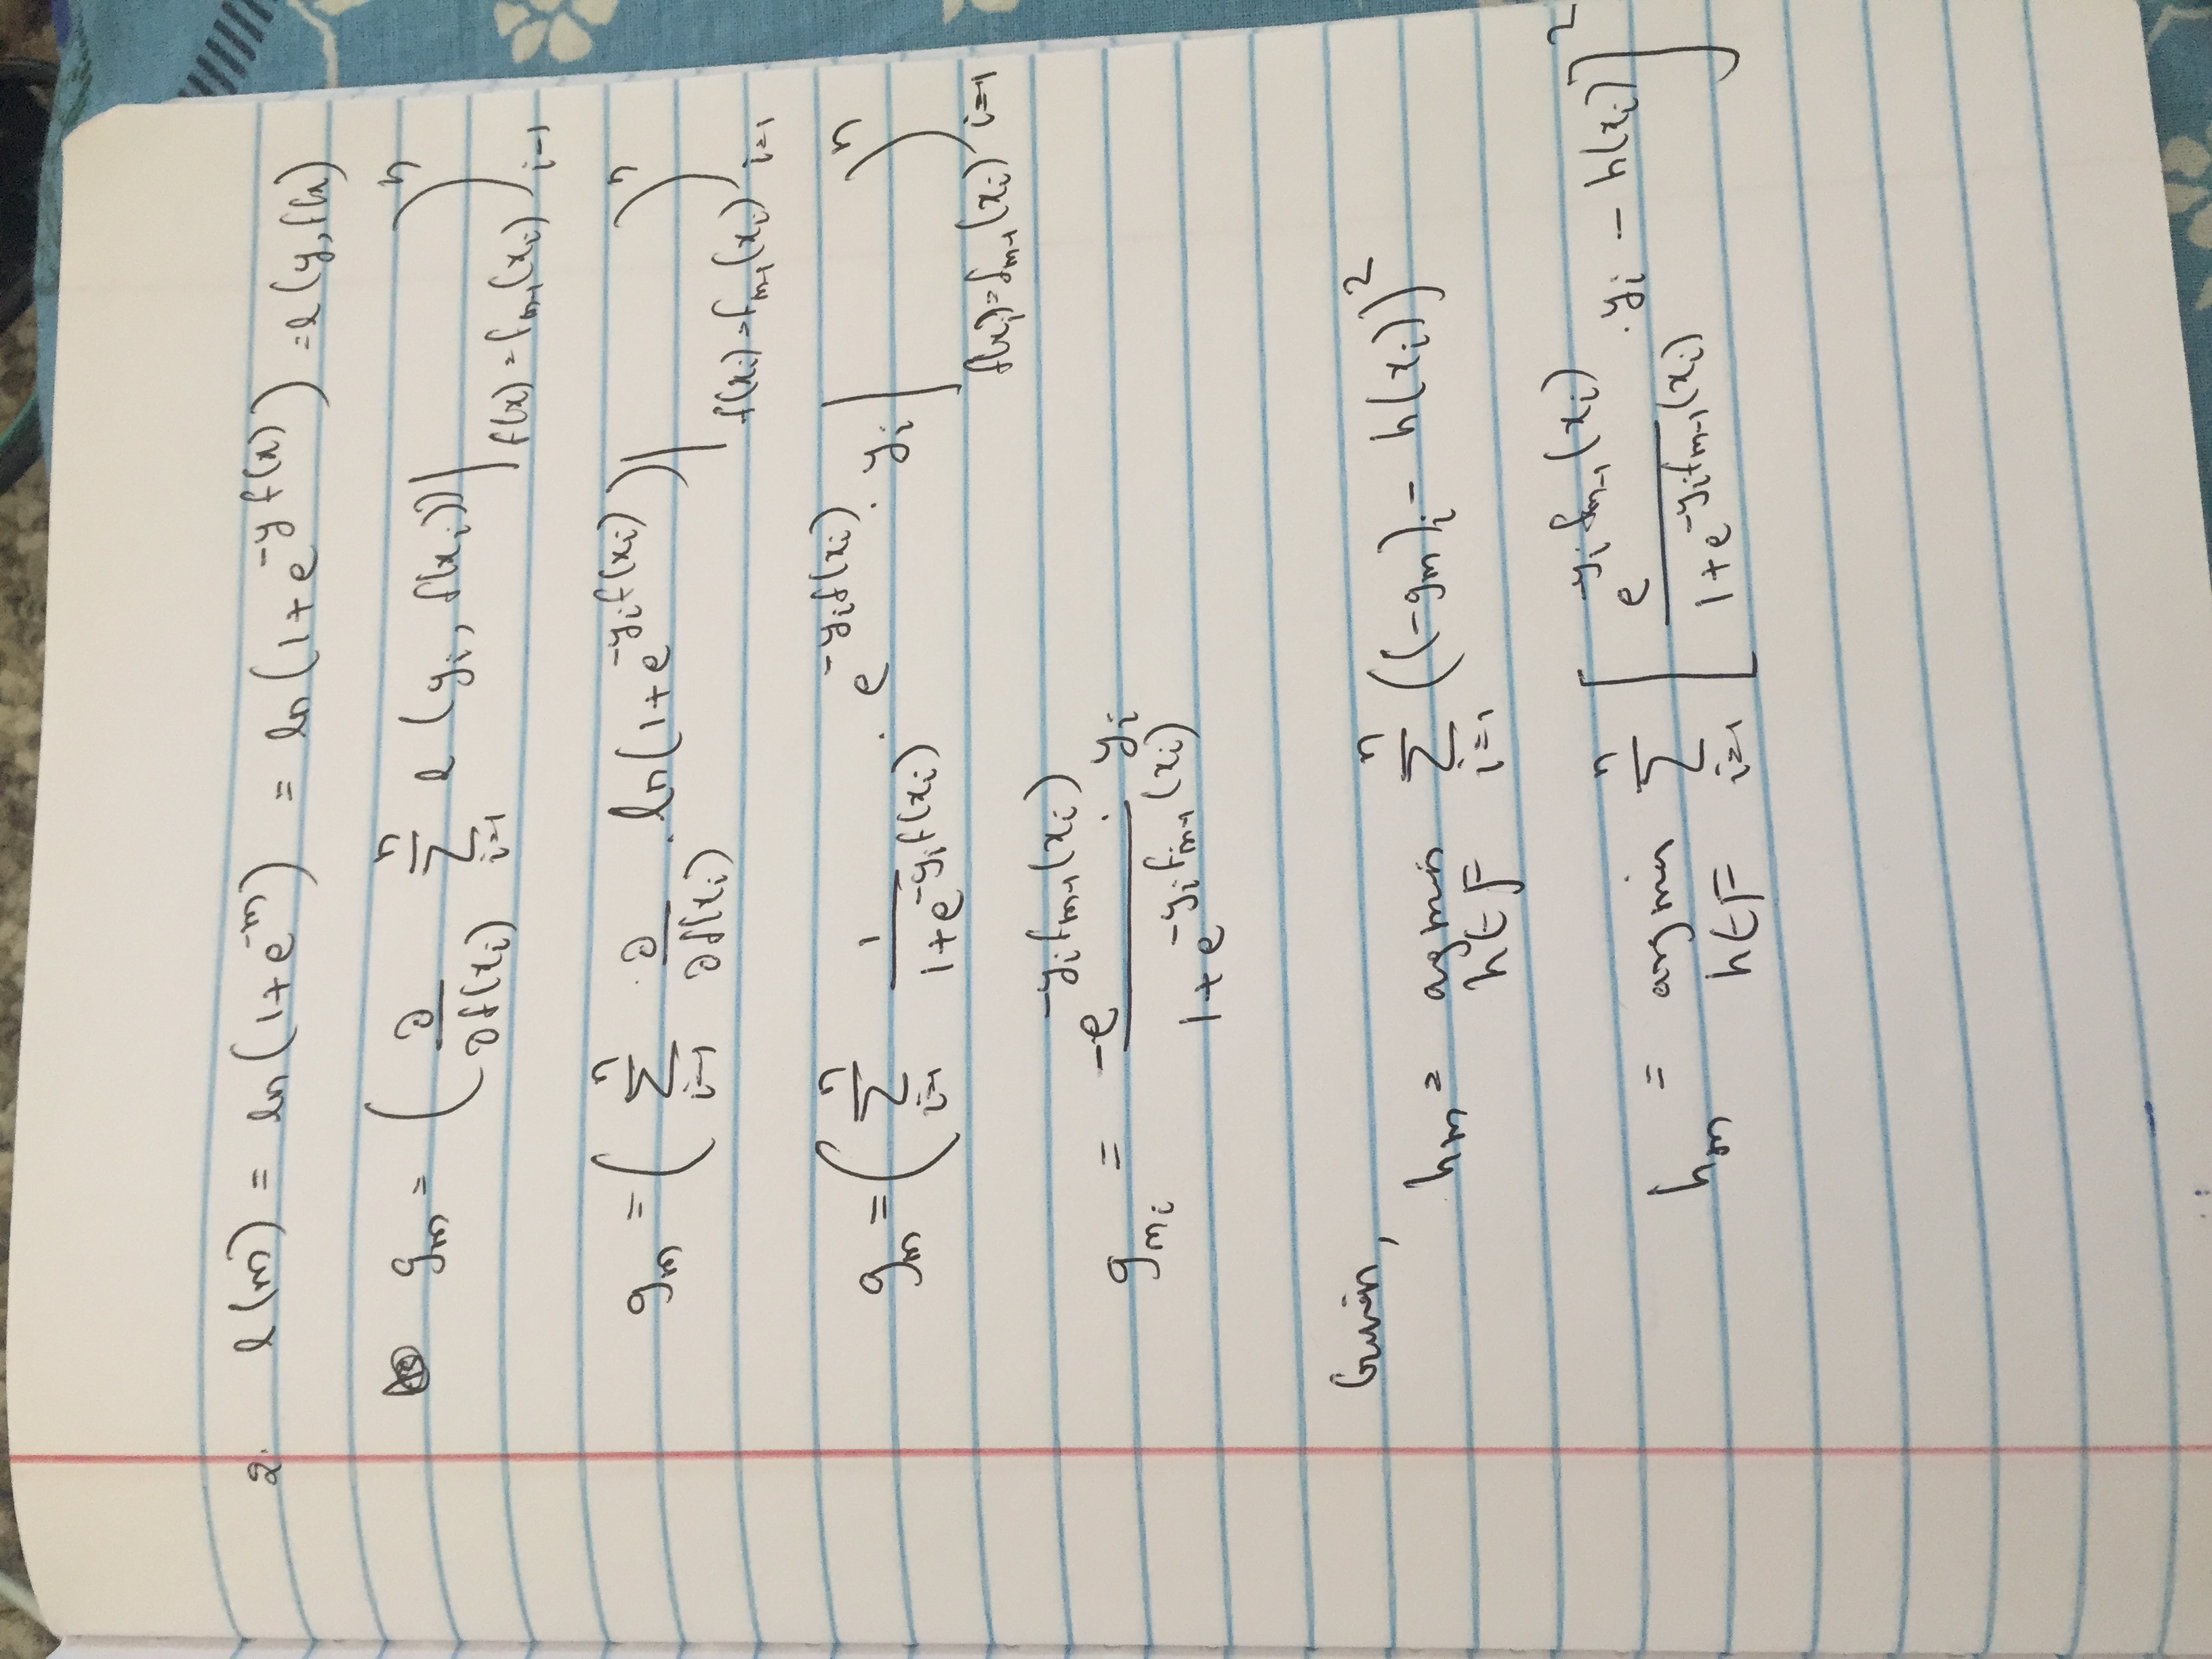 2. l(m) = ln(1+e^{-m}) = ln(1+e^{-y f(x)}) = l(y, f(x)
g_m = ( ∂/∂f(x_i) Σ_{i=1}^{n} l(y_i, f(x_i)) |_{f(x) = f_{m-1}(x_i)} )_{i=1}^{n}
g_m = ( Σ_{i=1}^{n} ∂/∂f(x_i) . ln(1+e^{-y_i f(x_i)}) |_{f(x_i) = f_{m-1}(x_i)} )_{i=1}^{n}
g_m = ( Σ_{i=1}^{n} 1/(1+e^{-y_i f(x_i)}) . e^{-y_i f(x_i)} . y_i |_{f(x_i) = f_{m-1}(x_i)} )_{i=1}^{n}
g_{m_i} = -e^{-y_i f_{m-1}(x_i)} . y_i / (1+e^{-y_i f_{m-1}(x_i)})
Given,
h_m = argmin_{h∈F} Σ_{i=1}^{n} ((-g_m)_i - h(x_i))^2
h_m = argmin_{h∈F} Σ_{i=1}^{n} [ e^{-y_i f_{m-1}(x_i)}/(1+e^{-y_i f_{m-1}(x_i)}) . y_i - h(x_i) ]^2